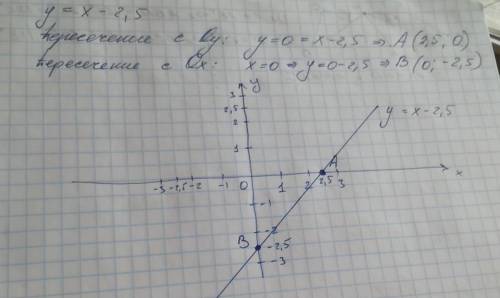 y = x - 2,5
пересечение с Oy: y=0 = x-2,5 ⇒ A (2,5, 0)
пересечение с Ox: x=0 ⇒ y=0-2,5 ⇒ B (0; -2,5)
y
3
2,5
2
1
y = x-2,5
A
-3 -2,5 -2 -1 0 1 2 2,5 3 x
-1
-2
B -2,5
-3